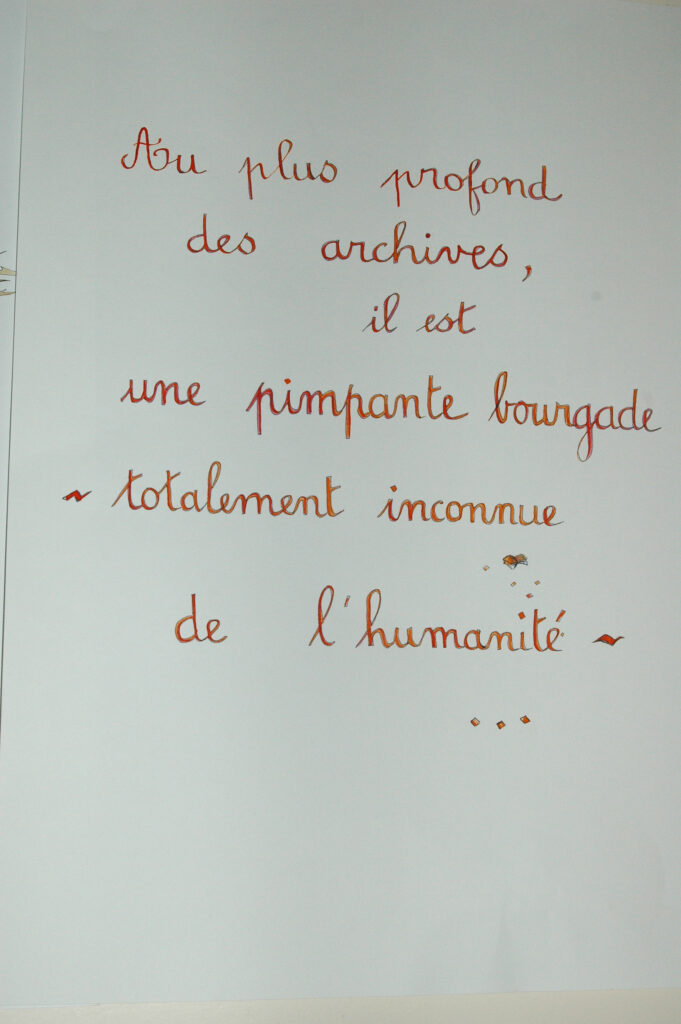 Au plus profond
des archives,
il est
une pimpante bourgade
~ totalement inconnue
de l'humanité ~
...